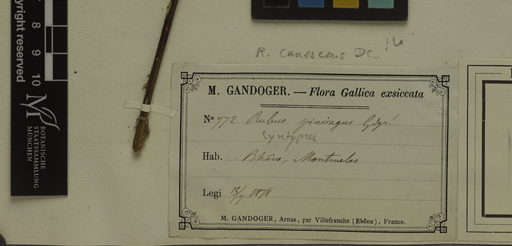 copyright reserved
7 8 9 10
BOTANISCHE
STAATSSAMMLUNG
MÜNCHEN
R. canescens DC.
M. GANDOGER. — Flora Gallica exsiccata
No 772 Rubus Gdgr!
Syntypus
Hab. Rhône, Montmelas
Legi 1878
M. GANDOGER, Arnas, par Villefranche (Rhône), France.